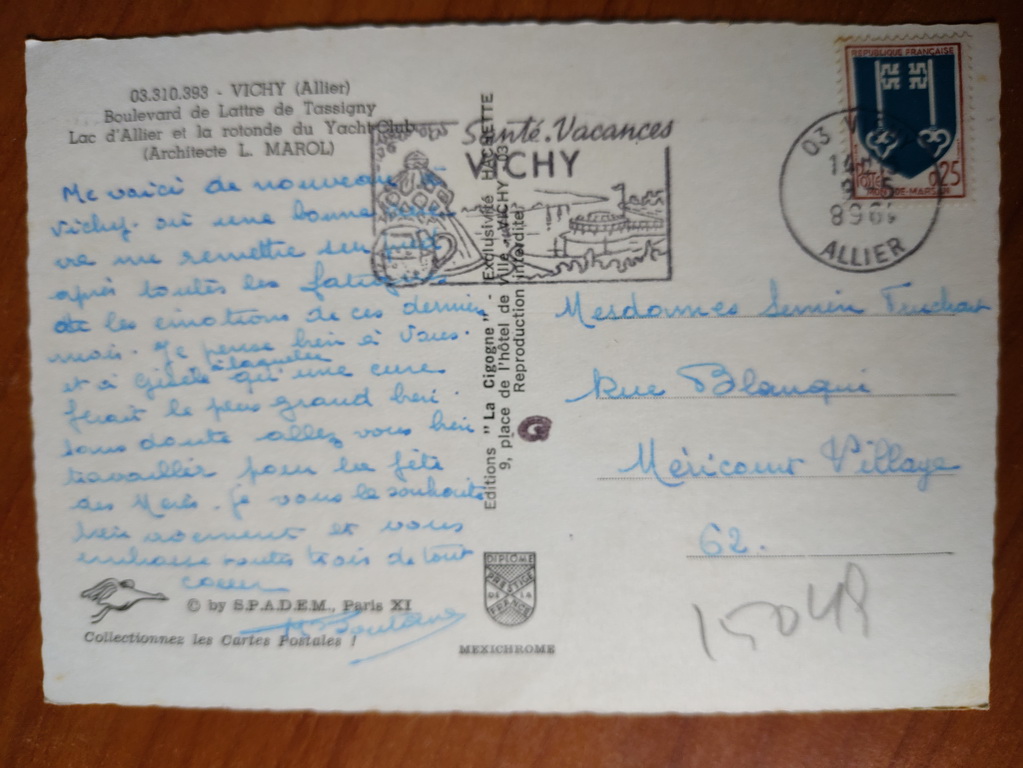 03.310.393 - VICHY (Allier)
Boulevard de Lattre de Tassigny
Lac d'Allier et la rotonde du Yacht Club
(Architecte L. MAROL)
Me voici de nouveau à
Vichy. où une bonne cure
va me remettre sur pied
après toutes les fatigues
et les émotions de ces derniers
mois. Je pense bien à Vous.
et à Gisèle à laquelle qu'une cure
ferait le plus grand bien.
Sans doute allez vous bien
travailler pour la fête
des Mères. Je vous la souhaite
bien vivement et vous
embrasse toutes trois de tout
coeur
© by S.P.A.D.E.M., Paris XI
Collectionnez les Cartes Postales !
Editions "La Cigogne" - (Exclusivité HACHETTE
9, place de l'hôtel de ville - VICHY 03
Reproduction interdite
DIPLOME
PRESTIGE
FRANCE
MEXICHROME
Santé. Vacances
VICHY
03
ALLIER
REPUBLIQUE FRANÇAISE
0,25
MONT-DE-MARSAN
Mesdames Semin
Rue Blanqui
Méricourt Village
62.
15048